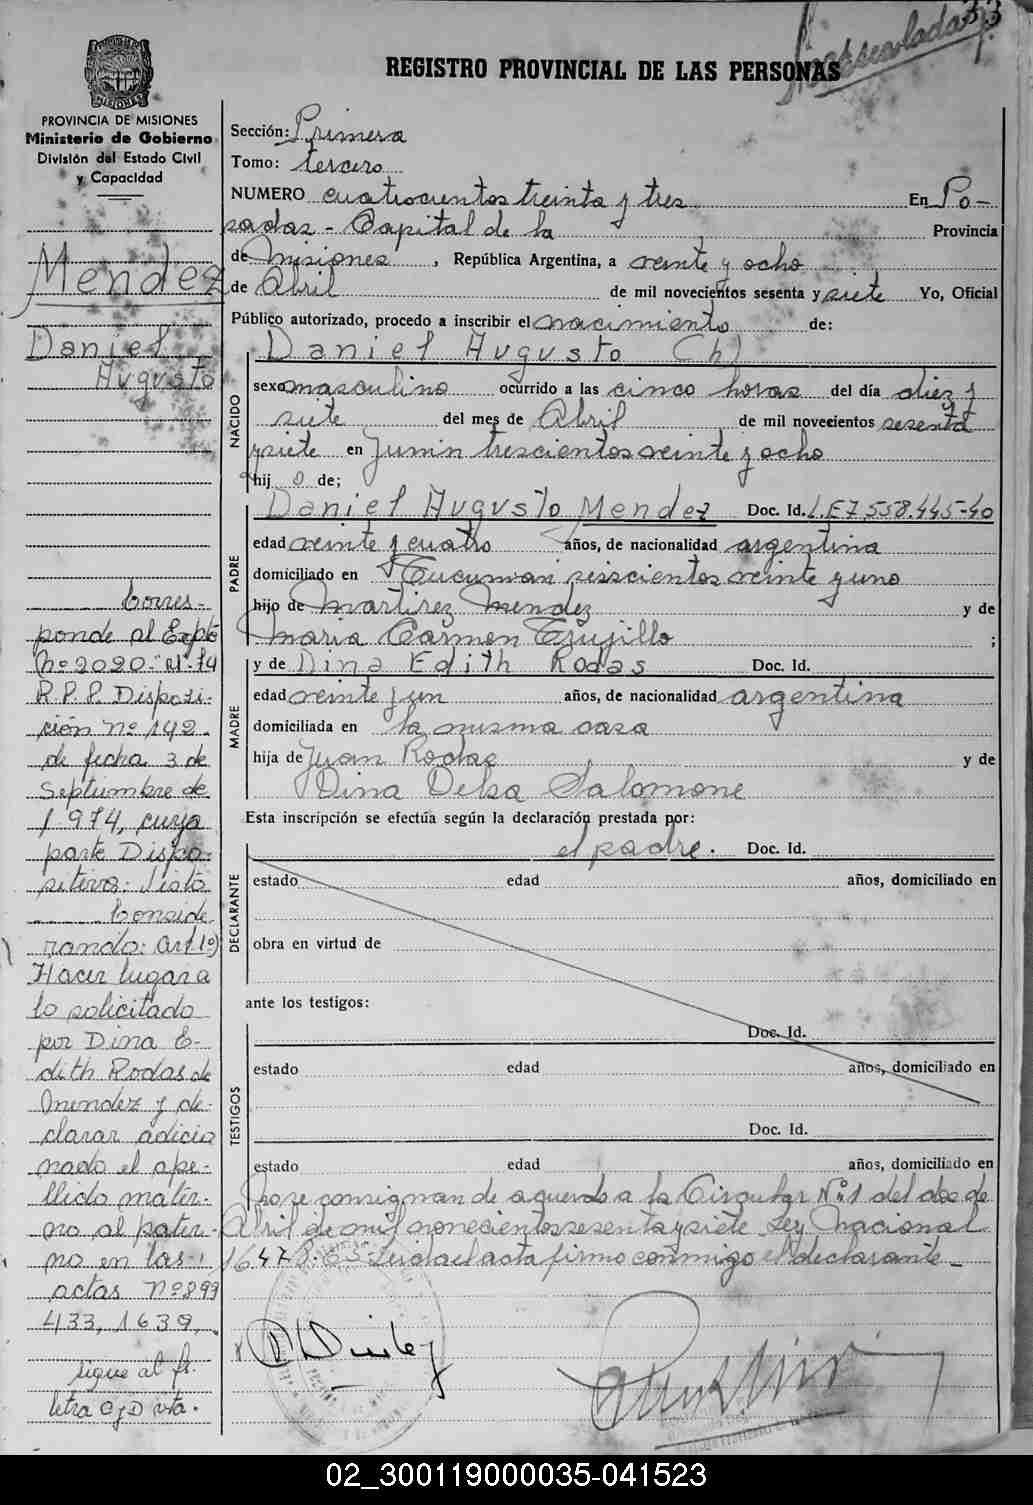 33
REGISTRO PROVINCIAL DE LAS PERSONAS
PROVINCIA DE MISIONES
Ministerio de Gobierno
División del Estado Civil
y Capacidad
Sección: Primera
Tomo: tercero
NUMERO cuatrocientos treinta y tres En Po-
sadas - Capital de la Provincia
de Misiones, República Argentina, a veinte y ocho
de Abril de mil novecientos sesenta y siete Yo, Oficial
Público autorizado, procedo a inscribir el nacimiento de:
Mendez
Daniel
Augusto
NACIDO
Daniel Augusto (h)
sexo masculino ocurrido a las cinco horas del día diez y
siete del mes de Abril de mil novecientos sesenta
y siete en Junin trescientos veinte y ocho
hij o de;
PADRE
Daniel Augusto Mendez Doc. Id. L.E 7.558.445-40
edad veinte y cuatro años, de nacionalidad argentina
domiciliado en Tucuman seiscientos veinte y uno
hijo de Martirez Mendez y de
Maria Carmen Trujillo ;
MADRE
y de Dina Edith Rodas Doc. Id.
edad veinte y un años, de nacionalidad argentina
domiciliada en la misma casa
hija de Juan Rodas y de
Dina Delsa Salomone
Esta inscripción se efectúa según la declaración prestada por:
el padre. Doc. Id.
DECLARANTE
estado edad años, domiciliado en
obra en virtud de
ante los testigos:
Doc. Id.
TESTIGOS
estado edad años, domiciliado en
Doc. Id.
estado edad años, domiciliado en
no se consignan de acuerdo a la Circular Nº 1 del dos de
Abril de mil novecientos sesenta y siete Ley Nacional
16.478.63- Leida el acta firmo conmigo el declarante -
Corres-
ponde al Expte
Nº 2020-"R"-74
R.P.P. Disposi-
ción Nº 142-
de fecha 3 de
Septiembre de
1974, cuya
parte Dispo-
sitiva: Visto
Conside
rando: Art 1º)
Hacer lugar a
lo solicitado
por Dina E-
dith Rodas de
Mendez y de-
clarar adicio
nado el ape-
llido mater-
no al pater-
no en las
actas Nº 899
433, 1639,
sigue al fs.
letra C y D vta.
02_300119000035-041523